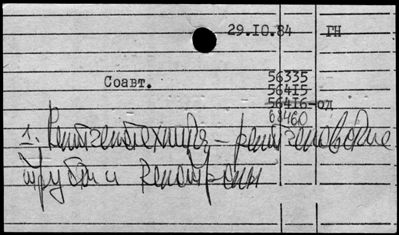 29.10.84 ГН
Соавт.
56335
56415
56416-ол
68460
1. Рентгенотехника – рентгеновские
трубки и кенотроны